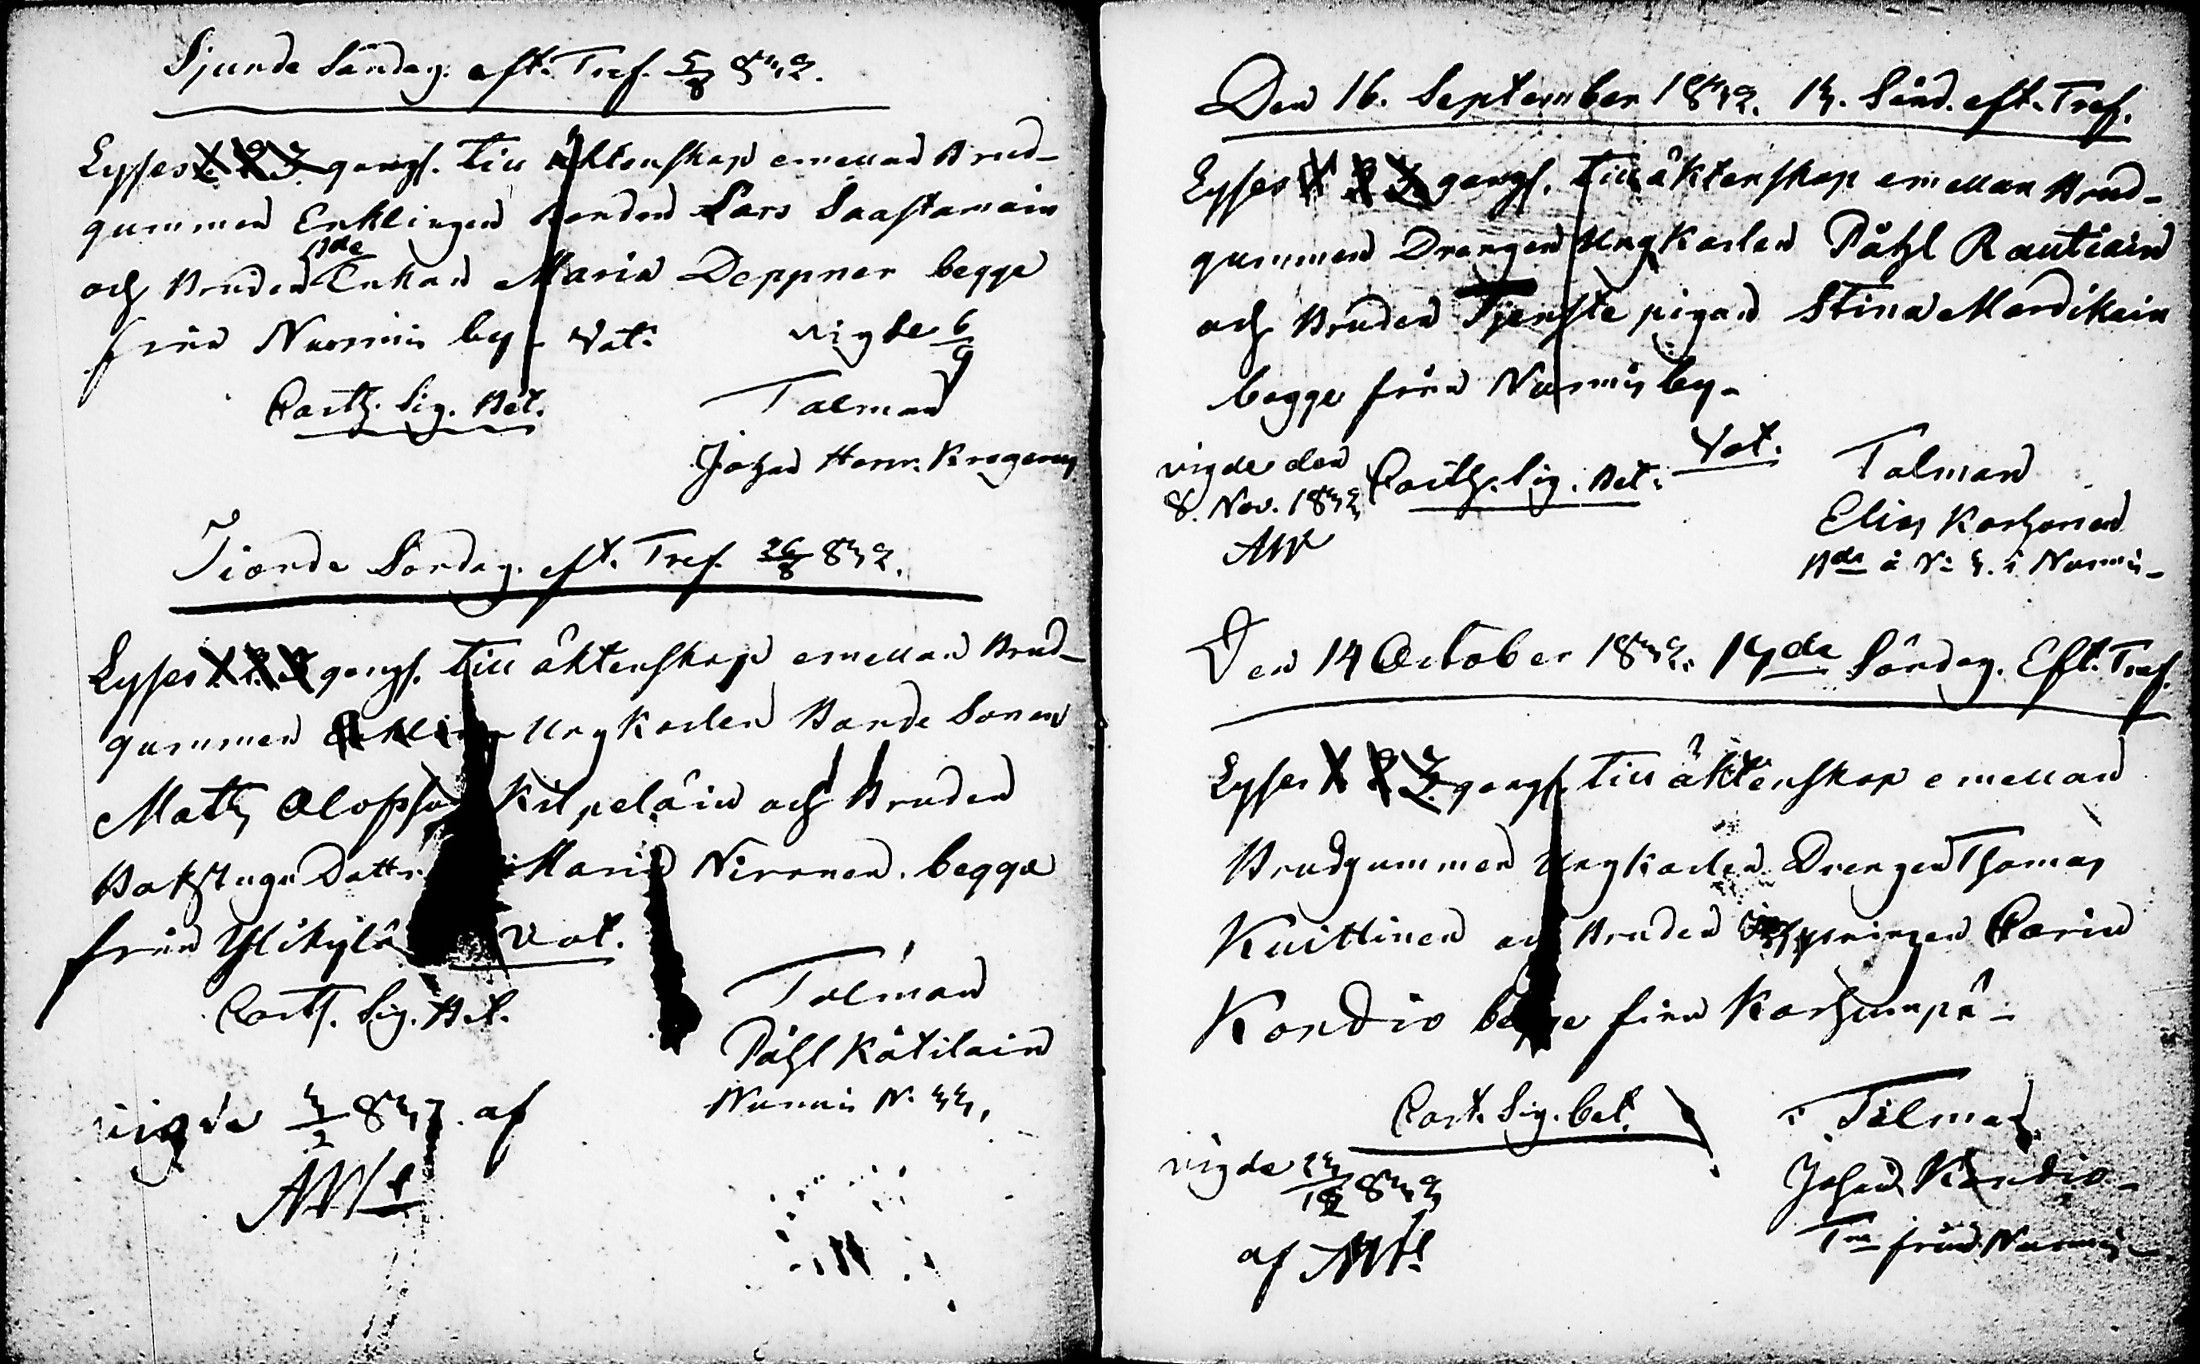 Sjunde Söndag. eft. Tref. 5/8 832.
Lyses 1. 2. 3 gangs. till äktenskap emellan Brud-
gummen Enklingen Bonden Lars Saastamoin
och Bruden Bde Enkan Maria Deppner begge
från Nurmis by - Vat. vigde 6/9
Carth. Sig. Bet. Talman
Johan Henr. Krogerus
Tionde Söndag. eft. Tref. 26/8 832.
Lyses 1. 2. 3 gangs. till äktenskap emellan Brud-
gummen Ungkarlen Bonde Sonen
Mats Olofsson Kilpeläin och Bruden
Bakstugu Dottr. Maria Nironen. begge
från Ylikylä Vat.
Carth. Sig. Bet. Talman
Påhl Kätilain
Nurmis N: 33,
vigde 3/2 833. af
AWl
Den 16. September 1832. 13. Sönd. eft. Tref.
Lyses 1 2 3 gangs. till äktenskap emellan Brud-
gummen Drengen Ungkarlen Påhl Rautiain
och Bruden Tjenste pigan Stina Mardikain
begge från Nurmis by -
Vat.
vigde den Carth. Sig. Bet. Talman
8. Nov. 1832 Elias Korhonen
AW Bde å N: 3. i Nurmis -
Den 14 October 1832. 17de Söndag. Eft. Tref.
Lyses 1 2 3 gangs. till äktenskap emellan
Brudgummen Ungkarlen Drengen Thomas
Kuittinen och Bruden Carin
Kondio begge från Karhunpä -
Cart. Sig. bet. Talman
vigde 23/12 832 Johan Kondio -
af AWl Tm från Nurmis -